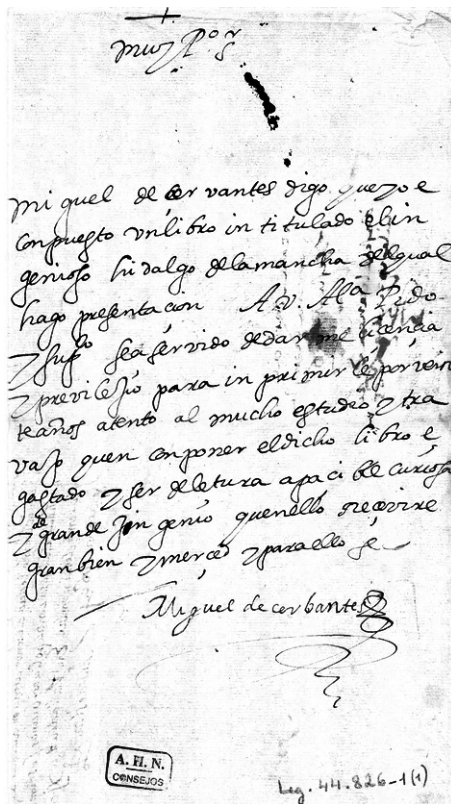 muy P.or S
miguel de cervantes digo que yo e
conpuesto un libro intitulado el in
genioso hidalgo de la mancha del qual
hago presentacion A v. Al.a Pido
y sup.co sea servido de darme licencia
y previlejio para inprimirle por vein
te años atento al mucho estudio y tra
vajo quen conponer el dicho libro e
gastado y ser de letura apacible curiosa
y de grande yngenio quenello recivire
gran bien y merced y para ello &
Miguel de cerbantes
A. H. N.
CONSEJOS
Leg. 44.826-1(1)